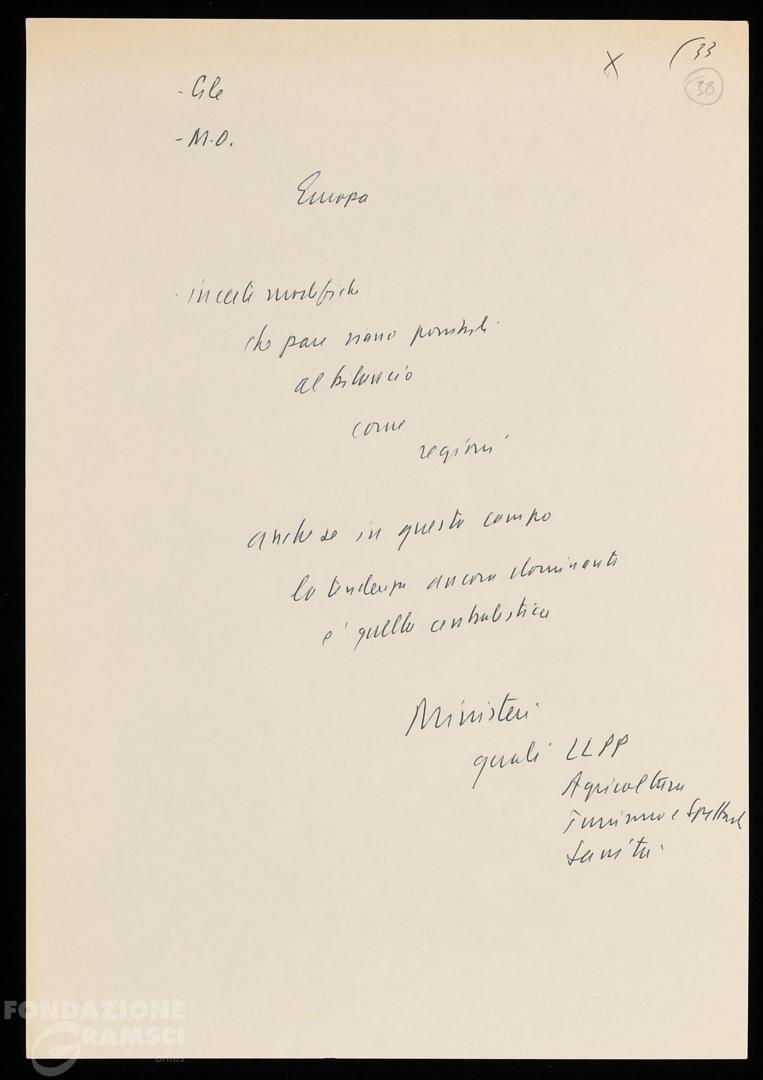 X
33
38
- Cile
- M.O.
Europa
- incerte modifiche
che pare siano possibili
al bilancio
come
regioni
anche se in questo campo
la tendenza ancora dominante
e' quella centralistica
Ministeri
quali LLPP
Agricoltura
Turismo e Spettacolo
Sanità
FONDAZIONE
GRAMSCI
onlus